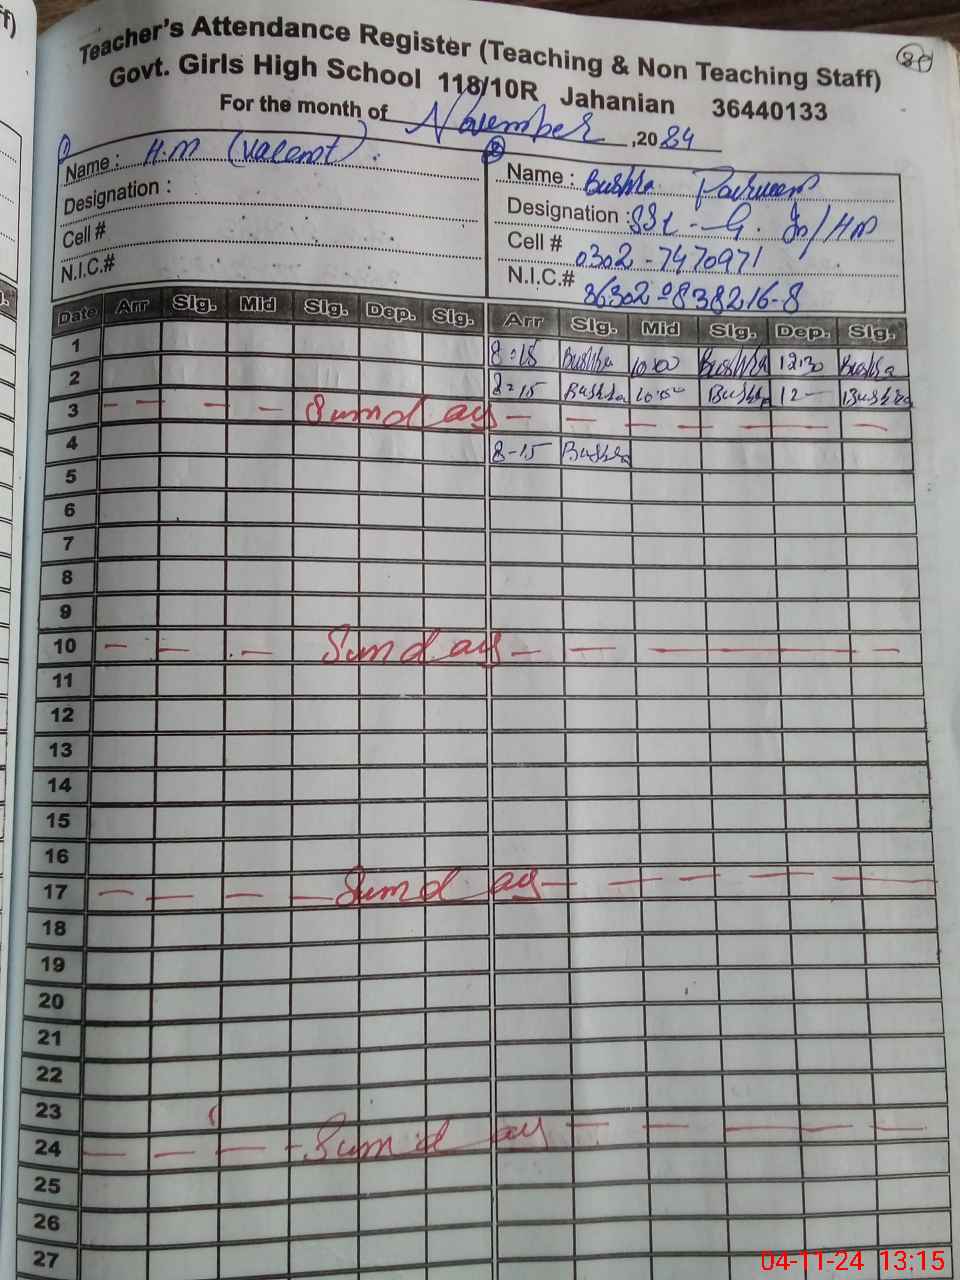 Teacher's Attendance Register (Teaching & Non Teaching Staff)
Govt. Girls High School 118/10R Jahanian 36440133
For the month of November ,2024
1
Name : H.M (Vacent).
Designation :
Cell #
N.I.C.#
2
Name : Bushra Parveen
Designation : SSt - G. In/HM
Cell # 0302-7470971
N.I.C.# 36302-0838216-8
Date Arr Sig. Mid Sig. Dep. Sig. Arr Sig. Mid Sig. Dep. Sig.
1 8:15 Bushra 10:00 Bushra 12:30 Bushra
2 8=15 Bushra Bushra 12- Bushra
3 - - - - Sunday - - - - - - -
4 8-15 Bushra
5
6
7
8
9
10 - - - Sunday - - - - - -
11
12
13
14
15
16
17 - - - - Sunday - - - - - -
18
19
20
21
22
23
24 - - - - Sunday - - - - -
25
26
27
04-11-24 13:15